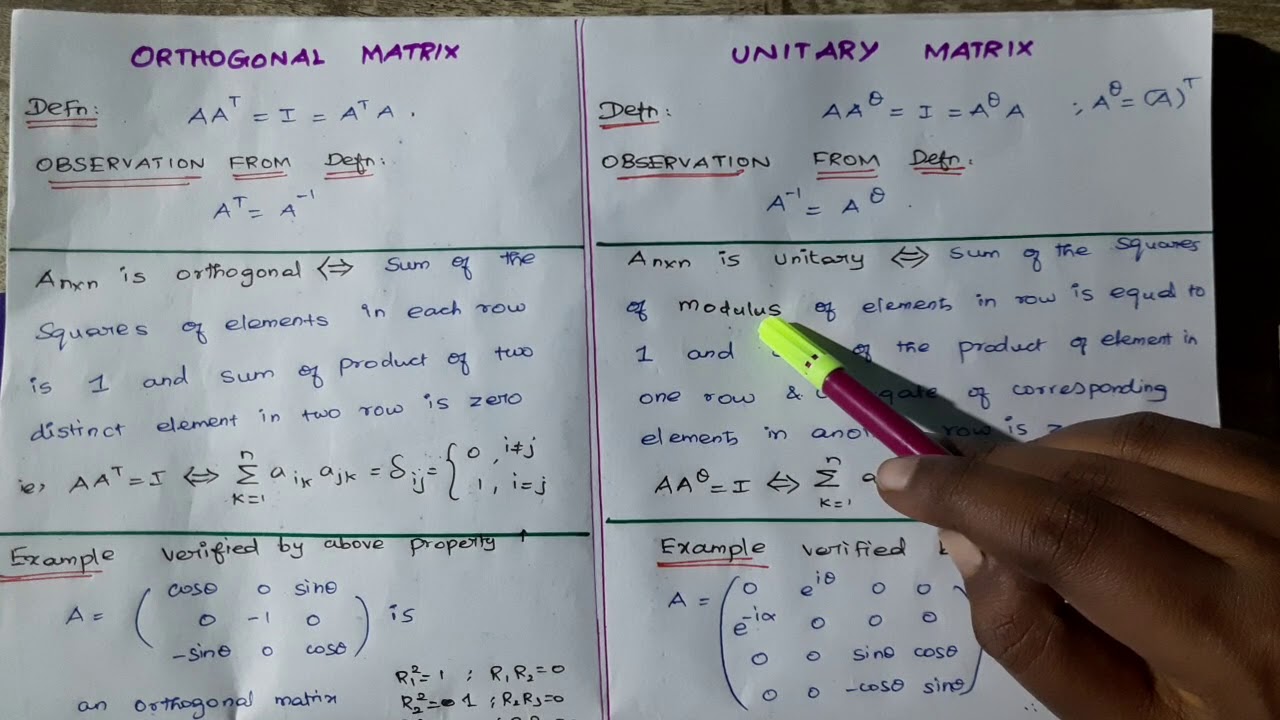 ORTHOGONAL MATRIX
Defn: AAᵀ = I = AᵀA .
OBSERVATION FROM Defn:
Aᵀ = A⁻¹
Anxn is orthogonal ⇔ sum of the
squares of elements in each row
is 1 and sum of product of two
distinct element in two row is zero
ie, AAᵀ = I ⇔ ∑ₖ₌₁ⁿ aᵢₖ aⱼₖ = δᵢⱼ = { 0 , i≠j
1 , i=j
Example verified by above property
A = ( cosθ 0 sinθ
0 -1 0
-sinθ 0 cosθ ) is
an orthogonal matrix
R₁² = 1 ; R₁R₂ = 0
R₂² = 1 ; R₂R₃ = 0
UNITARY MATRIX
Defn: AA^θ = I = A^θ A ; A^θ = (A̅)ᵀ
OBSERVATION FROM Defn:
A⁻¹ = A^θ .
Anxn is unitary ⇔ sum of the squares
of modulus of element in row is equal to
1 and of the product of element in
one row & of corresponding
elements in row is
AA^θ = I ⇔ ∑ₖ₌₁ⁿ a
Example verified
A = ( 0 e^iθ 0 0
e^-iα 0 0 0
0 0 sinθ cosθ
0 0 -cosθ sinθ )